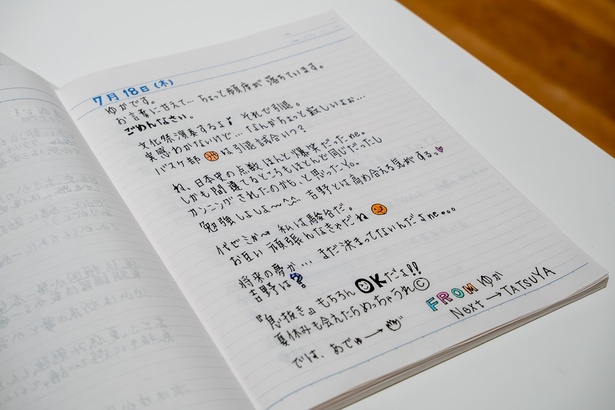 7月18日(木)
ゆかです。
お言葉に甘えて… ちょっと頻度が落ちています。
ごめんなさい。
文化祭演奏するよ♪ それで引退。
実感わかないけど… なんかちょっと寂しいよぉ…
バスケ部は引退試合いつ?
ね、日本史の点数ほんと爆笑だったne。
しかも間違えるところもほとんど同じだったし
カンニングされたのかも、と思ったYo。
勉強しましょ〜^^ 吉野とは高め合える気がするっ♥
代ゼミか〜 私は駿台だ。
お互い頑張んなきゃだね
将来の夢か… まだ決まってないんだよne…
吉野は?
『息抜き』もちろんOKだよ!!
夏休みも会えたらめっちゃうれC
では、あでゅ→
FROM ゆか
Next → TATSUYA